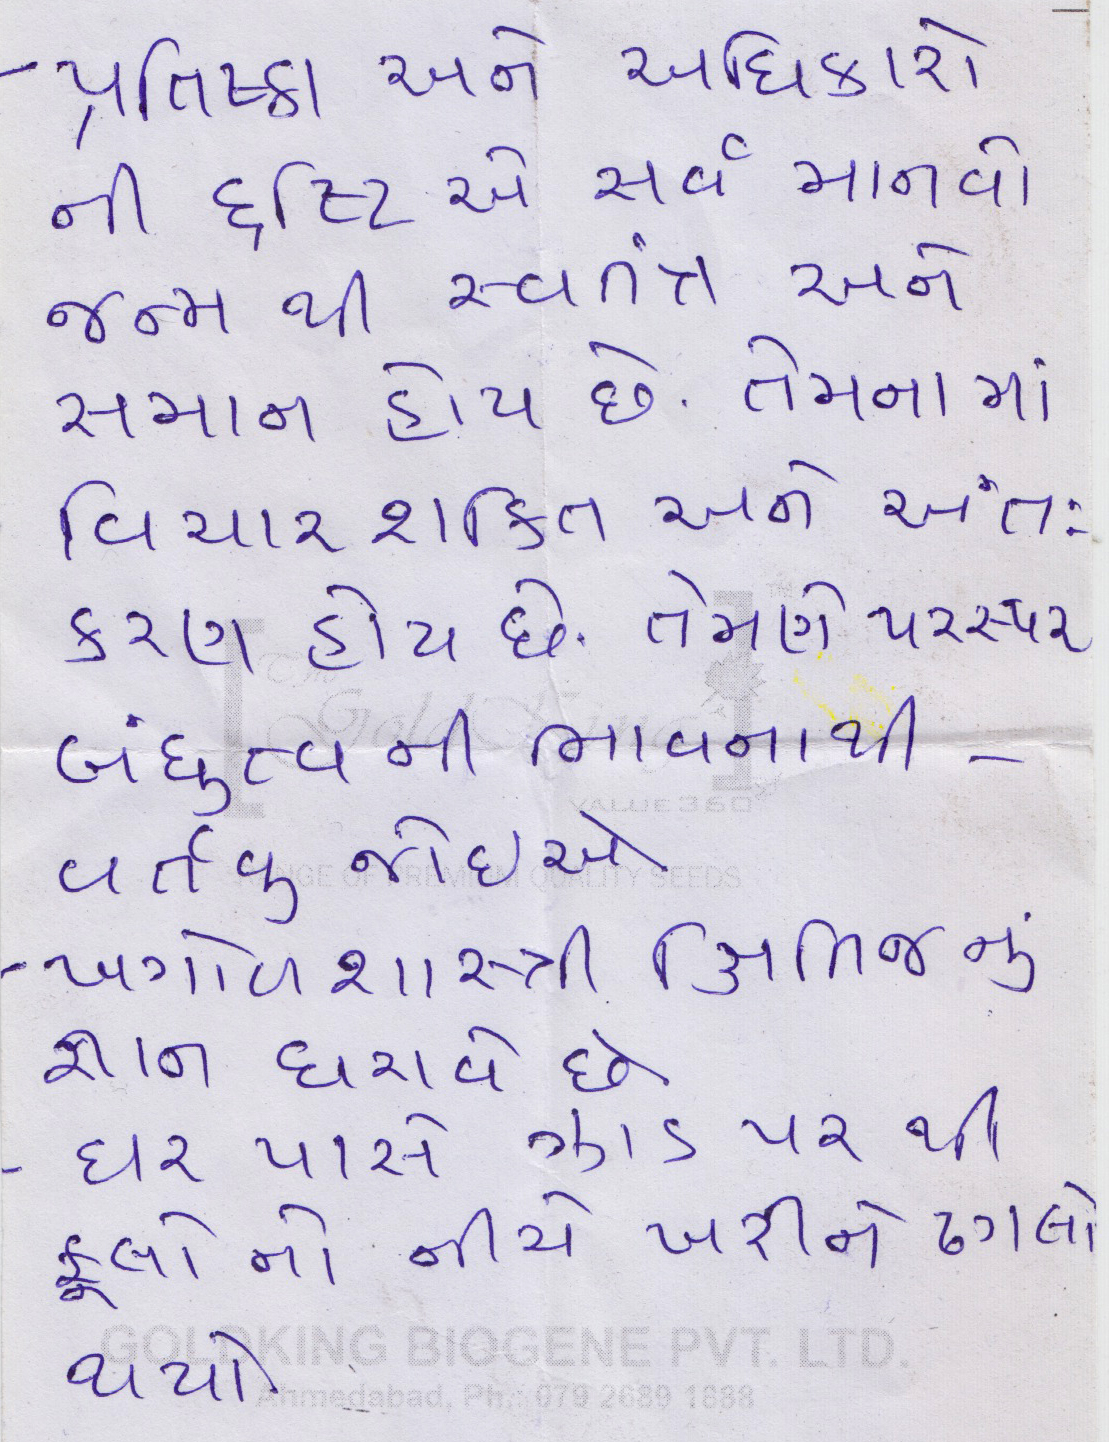 - પ્રતિષ્ઠા અને અધિકારો
ની દ્દષ્ટિ એ સર્વ માનવો
જન્મ થી સ્વતંત્ર અને
સમાન હોય છે. તેમના માં
વિચાર શક્તિ અને અંતઃ
કરણ હોય છે. તેમણે પરસ્પર
બંધુત્વ ની ભાવના થી -
વર્તવુ જોઇએ
- ખગોળ શાસ્ત્રી ક્ષિતિજ નું
જ્ઞાન ધરાવે છે
- ઘર પાસે ઝાડ પર થી
ફૂલો નો નીચે ખરીને ઢગલો
થયો.
Gold King
VALUE 360
RANGE OF PREMIUM QUALITY SEEDS
GOLDKING BIOGENE PVT. LTD.
Ahmedabad, Ph.: 079 2689 1888